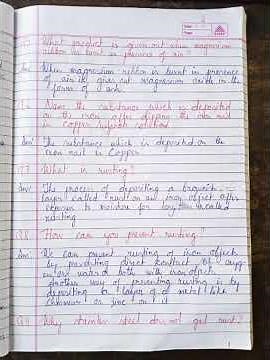 What product is given out when magnesium
ribbon is burnt in presence of air?
Ans When magnesium ribbon is burnt in presence
of air it gives out magnesium oxide in the
form of
Q.6 Name the substance which is deposited
on the iron after dipping the iron nail
in copper sulphate
Ans The substance which is deposited on the
iron nail is Copper
Q.7 What is rusting?
Ans The process of depositing a
layer called rust on an iron object
to moisture for long is called
rusting
Q.8 How can you prevent rusting?
Ans We can prevent rusting of iron objects
by preventing direct contact of
water both with iron objects
Another way of preventing rusting is by
depositing a layer of metal like
chromium or zinc on it
Why stainless steel does not get rust?